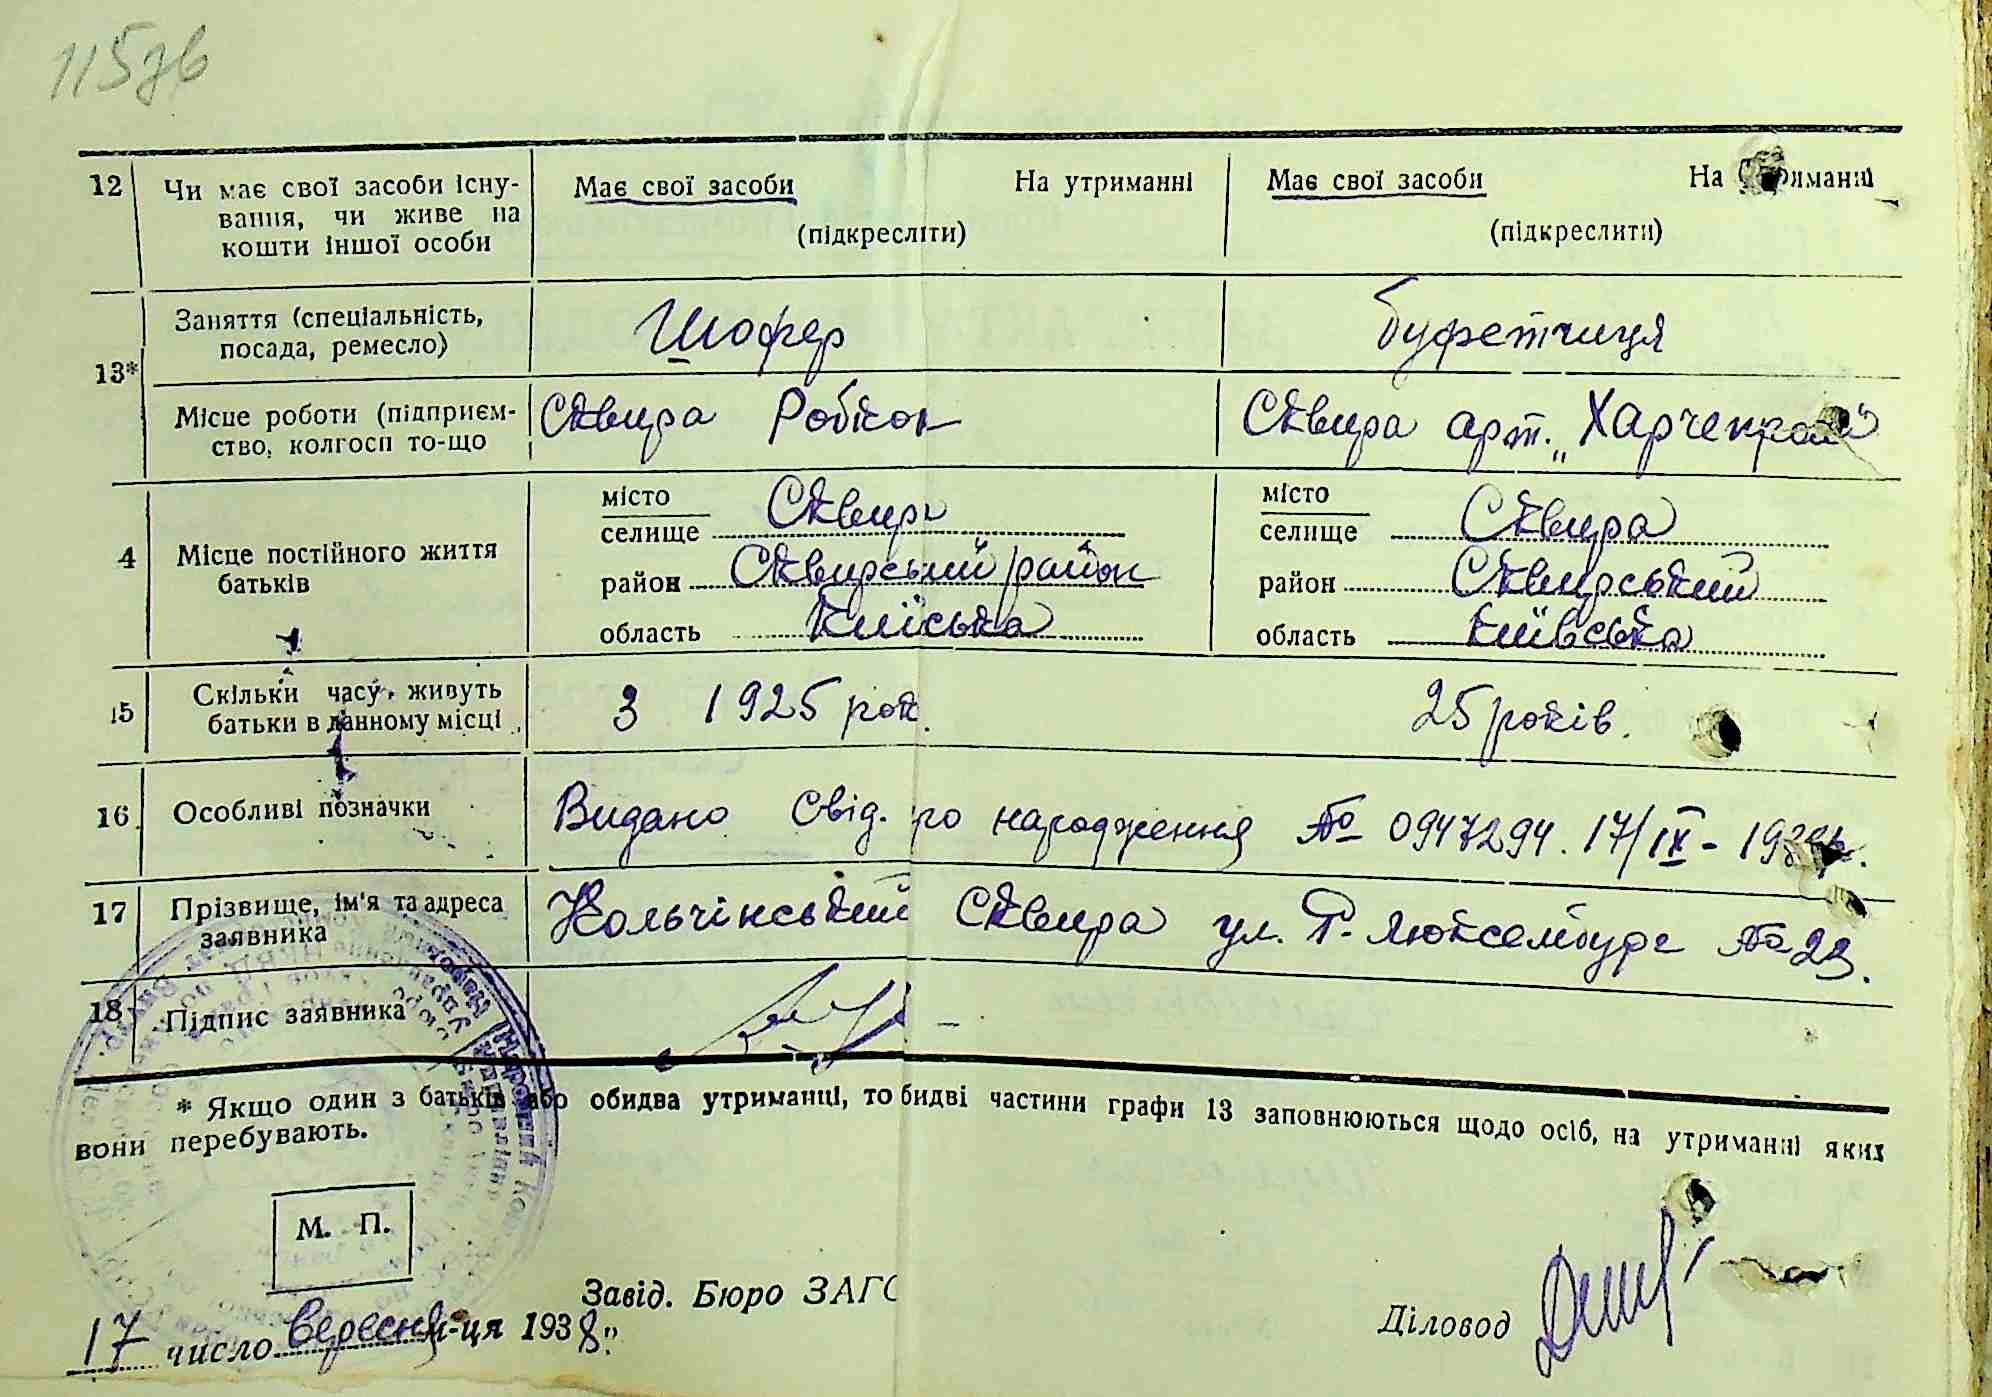 115зв
12 Чи має свої засоби існу- Має свої засоби На утриманні Має свої засоби На утриманні
вання, чи живе на (підкреслити) (підкреслити)
кошти іншої особи
13* Заняття (спеціальність, Шофер буфетчиця
посада, ремесло)
Місце роботи (підприєм- Сквира Робкоп Сквира арт. „Харчепром"
ство, колгосп то-що
4 Місце постійного життя місто Сквира місто Сквира
батьків селище селище
район Сквирський район район Сквирський
область Киїська область Київська
15 Скільки часу живуть З 1925 рок. 25 років.
батьки в данному місці
16 Особливі позначки Видано Свід. про народження № 0947294. 17/IX - 1938р.
17 Прізвище, ім'я та адреса Кольчінський Сквира ул. Р. Люксембург № 23.
заявника
18 Підпис заявника
* Якщо один з батьків або обидва утриманці, то бидві частини графи 13 заповнюються щодо осіб, на утриманні яких
вони перебувають.
М. П.
Завід. Бюро ЗАГС
Діловод
17 число вересня м-ця 1938 р.